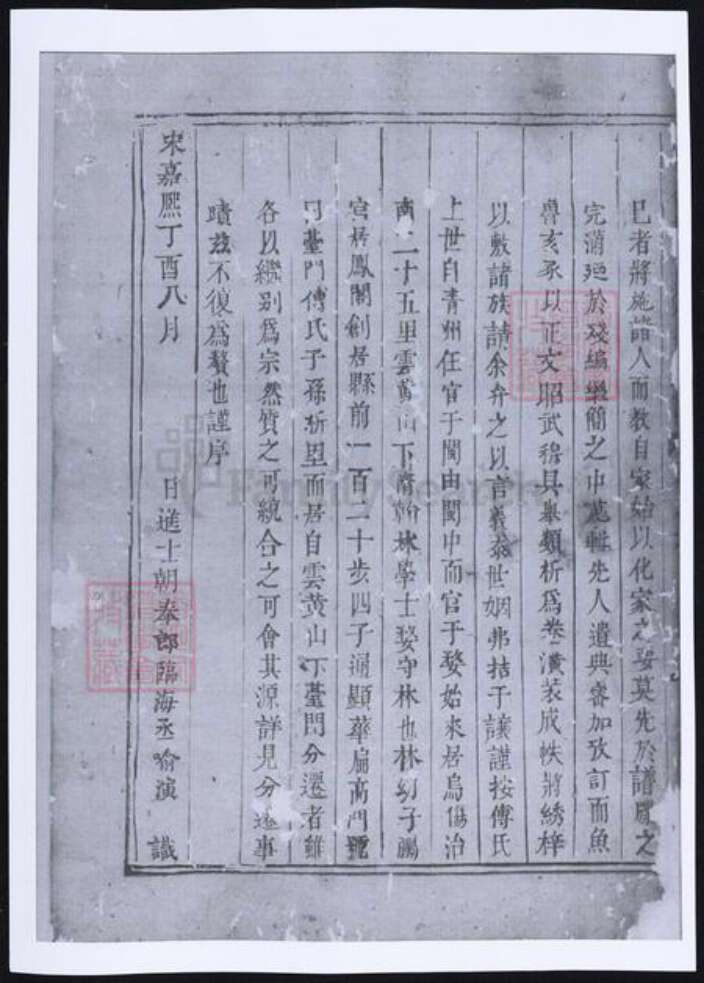 已者將施諸人而教自家始以化家之要莫先於譜眉之
完滴廻於殘編緞簡之中蒐輯先人遺典審加攷訂而魚
魯亥豕以正文昭武穆具舉類析為卷潢裝成帙將綉梓
以敷諸族請余弁之以言義忝世姻弗拮于讓謹按傅氏
上世自青州任官于閩由閩中而官于婺始來居烏傷治
南二十五里雲黃山下膺翰林學士婺守林也林幼子鵬
宦居鳳闕創居縣前一百二十步四子通顯華扁高門號
曰臺門傅氏子孫析塈而居自雲黃山下臺門分遷者雖
各以繼别為宗然質之可統合之可會其源詳見分遷事
蹟茲不復為贅也謹序
宋嘉熙丁酉八月 日進士朝奉郎臨海丞喻演 識
FamilySearch